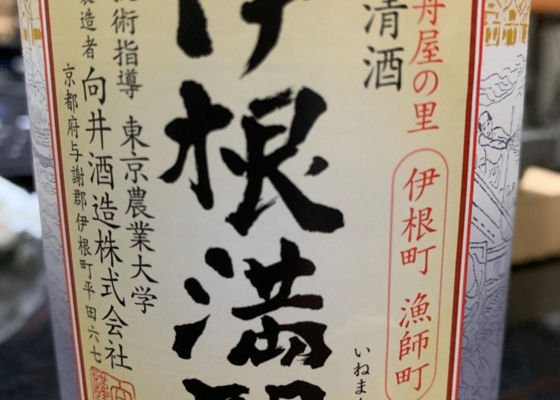 舟屋の里
伊根町 漁師町
清酒
いねま
伊根満開
技術指導 東京農業大学
製造者 向井酒造株式会社
京都府与謝郡伊根町平田六七